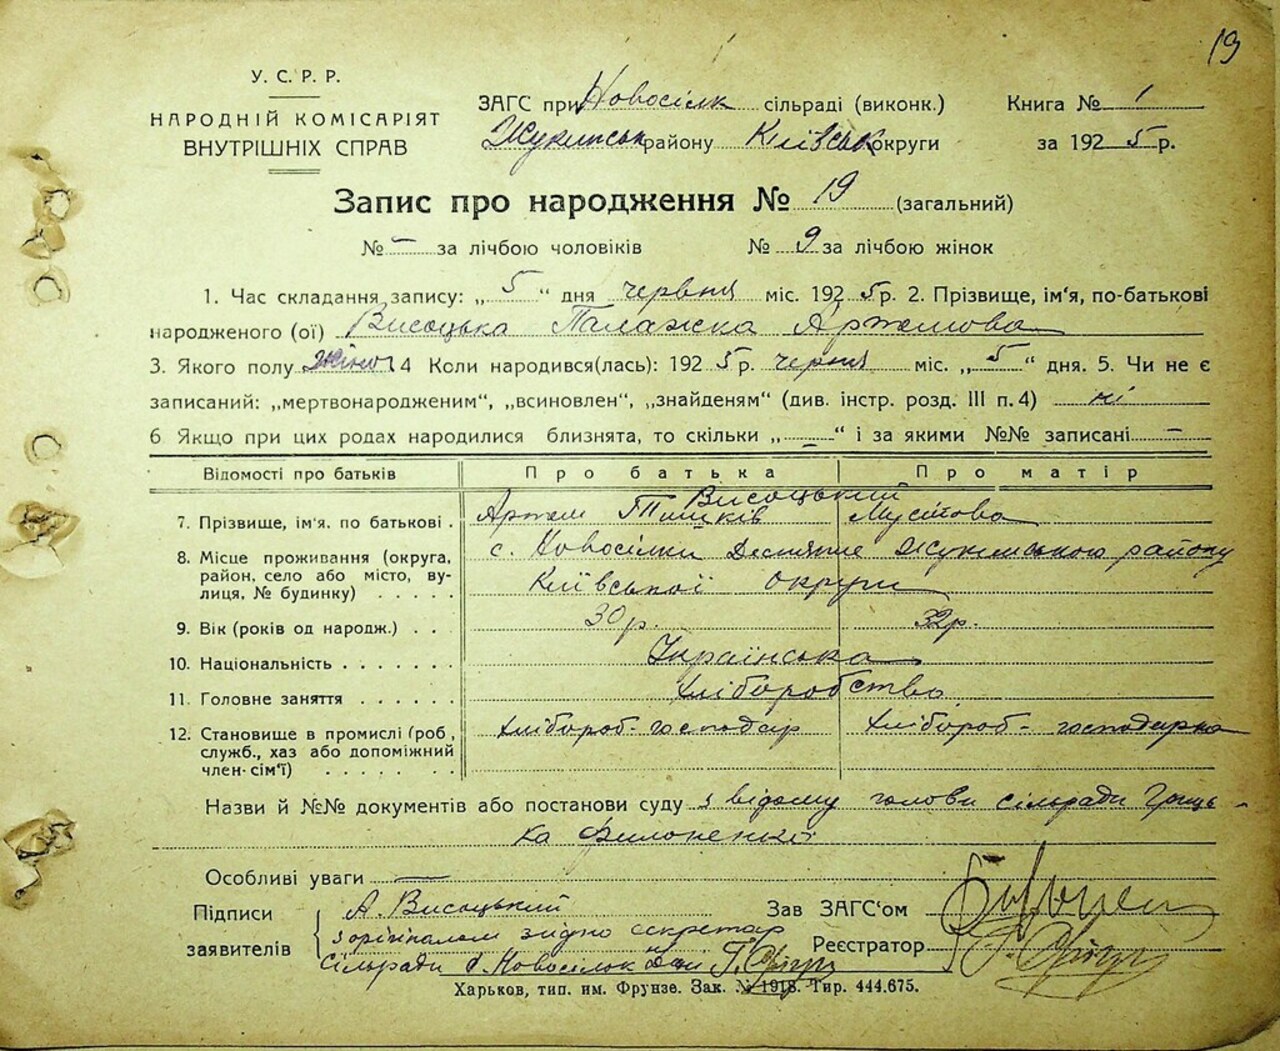 19
У. С. Р. Р.
НАРОДНІЙ КОМІСАРІЯТ
ВНУТРІШНІХ СПРАВ
ЗАГС при Новосілк сільраді (виконк.)
Жукинськ району Київськ округи
Книга № 1
за 1925 р.
Запис про народження № 19 (загальний)
№ — за лічбою чоловіків № 9 за лічбою жінок
1. Час складання запису: „ 5 “ дня червня міс. 1925 р. 2. Прізвище, ім'я, по-батькові
народженого (ої) Висоцька Палажка Артемова
3. Якого полу жіно 4 Коли народився(лась): 1925 р. червня міс. „ 5 “ дня. 5. Чи не є
записаний: „мертвонародженим“, „всиновлен“, „знайденям“ (див. інстр. розд. III п. 4) ні
6 Якщо при цих родах народилися близнята, то скільки „ — “ і за якими №№ записані —
Відомості про батьків Про батька Про матір
Висоцький
7. Прізвище, ім'я. по батькові . Артем Тишків
8. Місце проживання (округа, район, село або місто, вулиця, № будинку) . . . . . с. Новосілки Жукинського району
Київської округи
9. Вік (років од народж.) . . 30 р. 32 р.
10. Національність . . . . . . . Українська
11. Головне заняття . . . . . . хліборобство
12. Становище в промислі (роб, хлібороб-господар хлібороб-господарка
служб., хаз або допоміжний
член-сім'ї) . . . . . . .
Назви й №№ документів або постанови суду з відому голови сільради Гриць-
ка Филоненка
Особливі уваги —
Підписи заявителів А. Висоцький
з оригіналом згідно секретар
сільради с. Новосілок
Зав ЗАГС'ом
Реєстратор
Харьков, тип. им. Фрунзе. Зак. № 1918. Тир. 444.675.